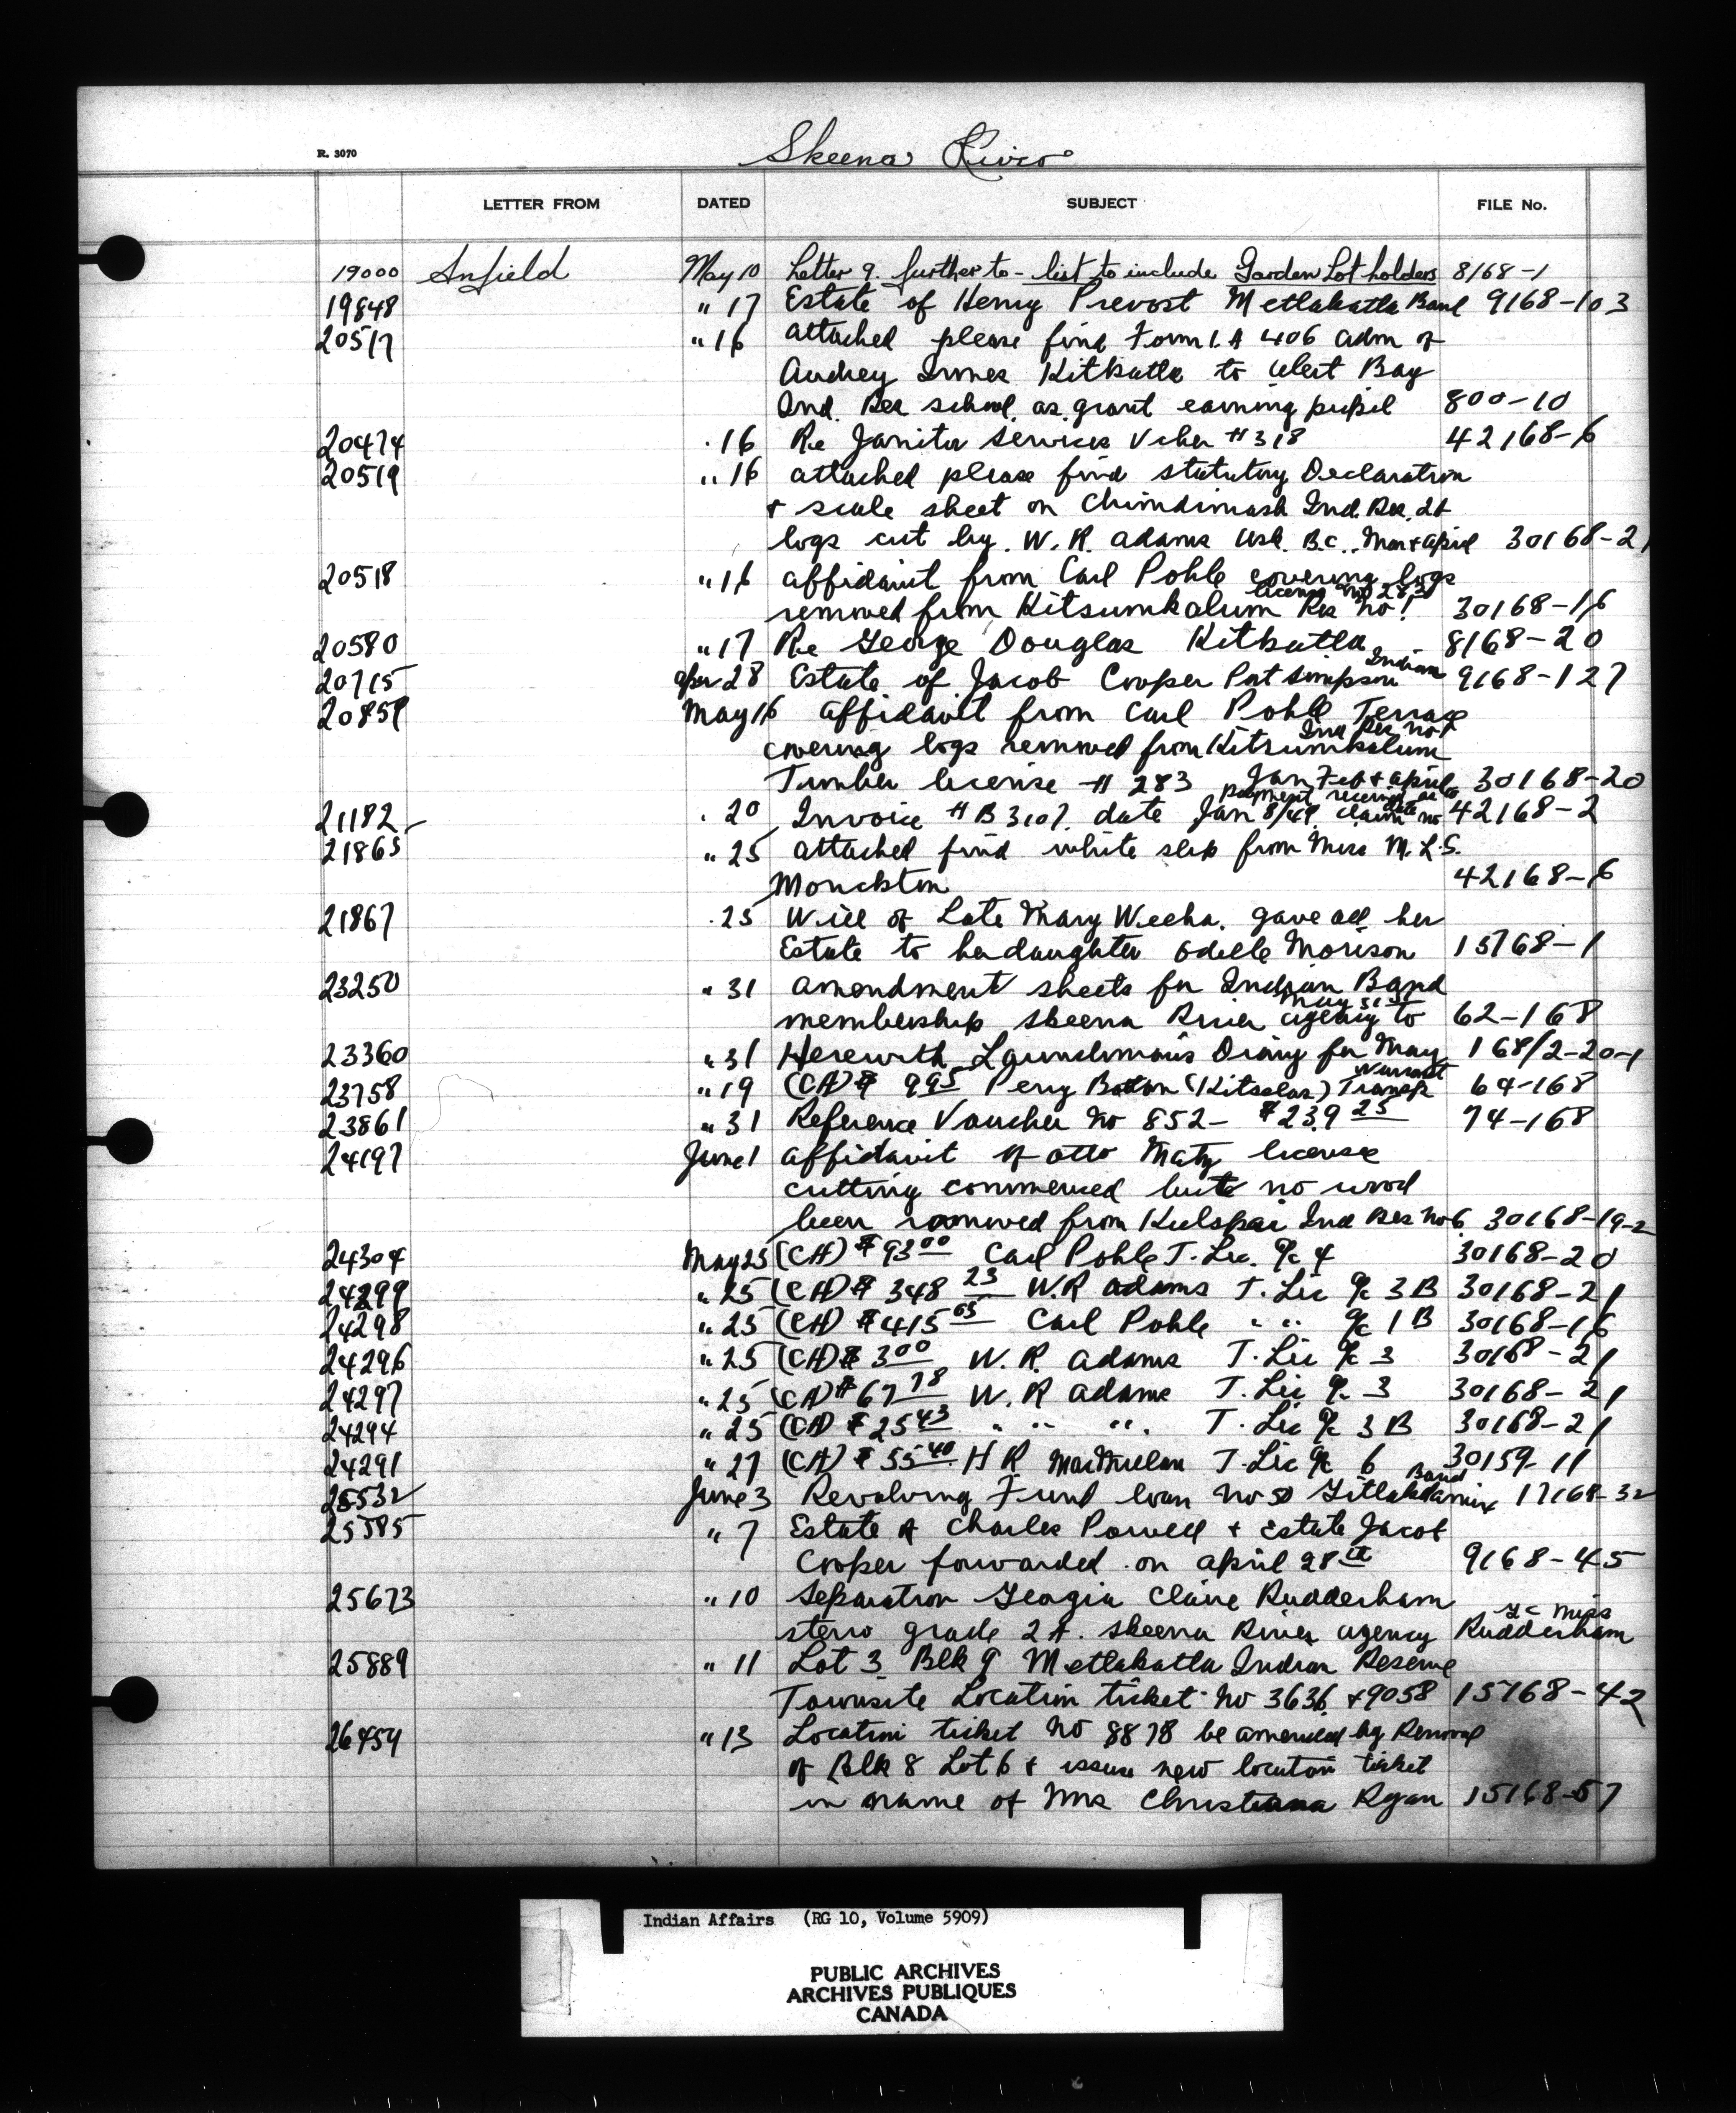 R. 3070
Skeena River
LETTER FROM DATED SUBJECT FILE No.
19000 Anfield May 10 Letter 9. further to - list to include Garden Lot holders 8168-1
19848 " 17 Estate of Henry Prevost Metlakatla Band 9168-103
20517 " 16 attached please find Form I.A 406 adm of
Audrey Innes Kitkatla to Alert Bay
Ind. Res school as grant earning pupil 800-10
20474 " 16 Re Janitor services Vcher # 318 42168-6
20519 " 16 attached please find statutory Declaration
+ scale sheet on Chimdimash Ind. Res. 2
logs cut by W. R. Adams Usk. B.C. Mar + April 30168-21
20518 " 16 affidavit from Carl Pohle covering logs
license no 283
removed from Kitsumkalum Res no 1 30168-16
20580 " 17 Re George Douglas Kitkatla 8168-20
20715 Apr 28 Estate of Jacob Cooper Port Simpson Indian 9168-127
20859 May 16 affidavit from Carl Pohle Terrace
Ind Res no 1
covering logs removed from Kitsumkalum
Timber license # 283 Jan Feb + April 30168-20
payment received
21182 " 20 Invoice # B 3107. date Jan 8/49. claim no 42168-2
21865 " 25 attached find white slip from Miss M. L. S.
Monckton 42168-6
21867 " 25 Will of Late Mary Weeha. gave all her
Estate to her daughter Odelle Morison 15168-1
23250 " 31 amendment sheets for Indian Band
May 31st
membership Skeena River agency to 62-168
23360 " 31 Herewith Diary for May 168/2-20-1
23758 " 19 (CA) $ 9 95 Perry Bolton (Kitselas) Transp Warrant 64-168
23861 " 31 Reference Voucher no 852 - $ 239 25 74-168
24197 June 1 affidavit of Otto Maty license
cutting commenced but no wood
been removed from Kulspai Ind Res no 6 30168-19-2
24304 May 25 (CA) $ 93 00 Carl Pohle T. Lic. % 4 30168-20
24299 " 25 (CA) $ 348 23 W.R Adams T. Lic % 3 B 30168-21
24298 " 25 (CA) $ 415 65 Carl Pohle " " % 1 B 30168-16
24296 " 25 (CA) $ 3 00 W. R. Adams T. Lic % 3 30168-21
24297 " 25 (CA) $ 67 78 W. R Adams T. Lic % 3 30168-21
24294 " 25 (CA) $ 25 43 " " " T. Lic % 3 B 30168-21
24291 " 27 (CA) $ 55 40 H R MacMillan T. Lic % 6 30159-11
25532 June 3 Revolving Fund loan no 50 Gitlakdamix Band 17168-32
25585 " 7 Estate of Charles Powell + Estate Jacob
Cooper forwarded on April 28th 9168-45
25673 " 10 Separation Georgia Claire Rudderham
steno grade 2 A. Skeena River agency Miss Rudderham
25889 " 11 Lot 3 Blk 9 Metlakatla Indian Reserve
Townsite Location ticket no 3636 + 9058 15168-42
26454 " 13 Location ticket no 8878 be amended by Removal
of Blk 8 Lot 6 + issue new location ticket
in name of Mrs Christiana Ryan 15168-57
Indian Affairs (RG 10, Volume 5909)
PUBLIC ARCHIVES
ARCHIVES PUBLIQUES
CANADA